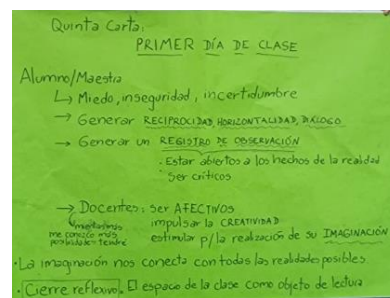 Quinta Carta:
PRIMER DÍA DE CLASE
Alumno/Maestra
↳ Miedo, inseguridad, incertidumbre
→ Generar RECIPROCIDAD, HORIZONTALIDAD, DIÁLOGO
→ Generar un REGISTRO DE OBSERVACIÓN
· Estar abiertos a los hechos de la realidad
· Ser críticos
→ Docentes: ser AFECTIVOS
impulsar la CREATIVIDAD
estimular p/la realización de su IMAGINACIÓN
me conozco más
posibilidades tendré
· La imaginación nos conecta con todas las realidades posibles
· Cierre reflexivo. El espacio de la clase como objeto de lectura